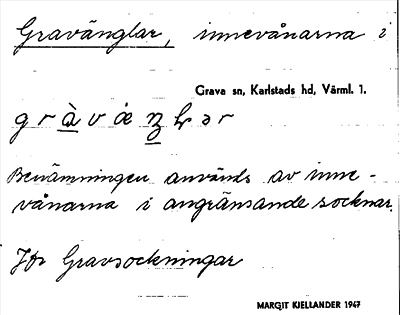 Gravänglar, innevånarna i
Grava sn, Karlstads hd, Värml. 1.
Benämningen används av inne-
vånarna i angränsande socknar.
Jfr Gravsockningar
MARGIT KJELLANDER 1947